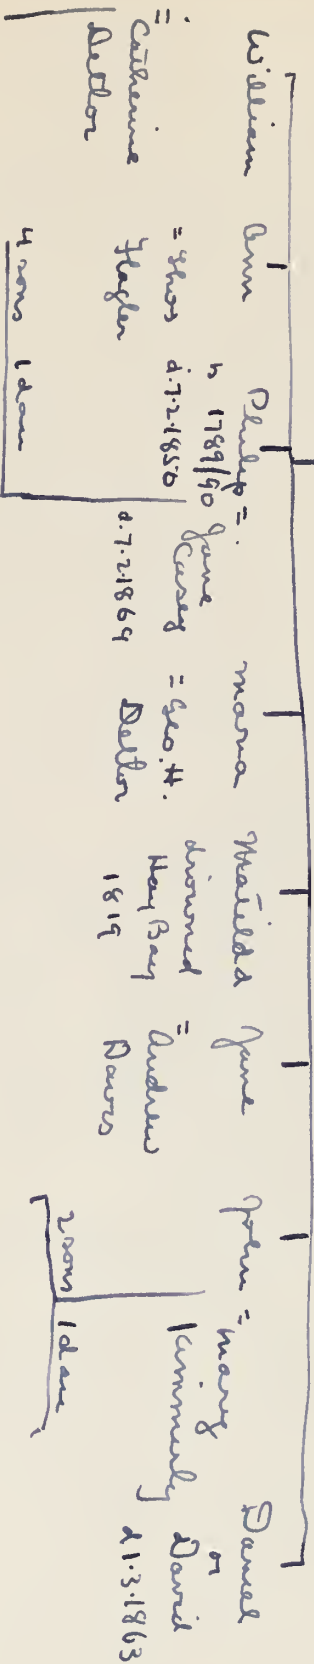 William
=
Catherine
Detlor
Ann
= Thos
Flagler
Philip =
b 1789/90
d. 7.2.1850
Jane
Casey
d. 7.2.1869
4 sons 1 dau
Maria
= Geo. H.
Detlor
Matilda
drowned
Hay Bay
1819
Jane
= Andrew
Davis
John = Mary
Kimmerly
2 sons 1 dau
Daniel
or
David
d 1.3.1863